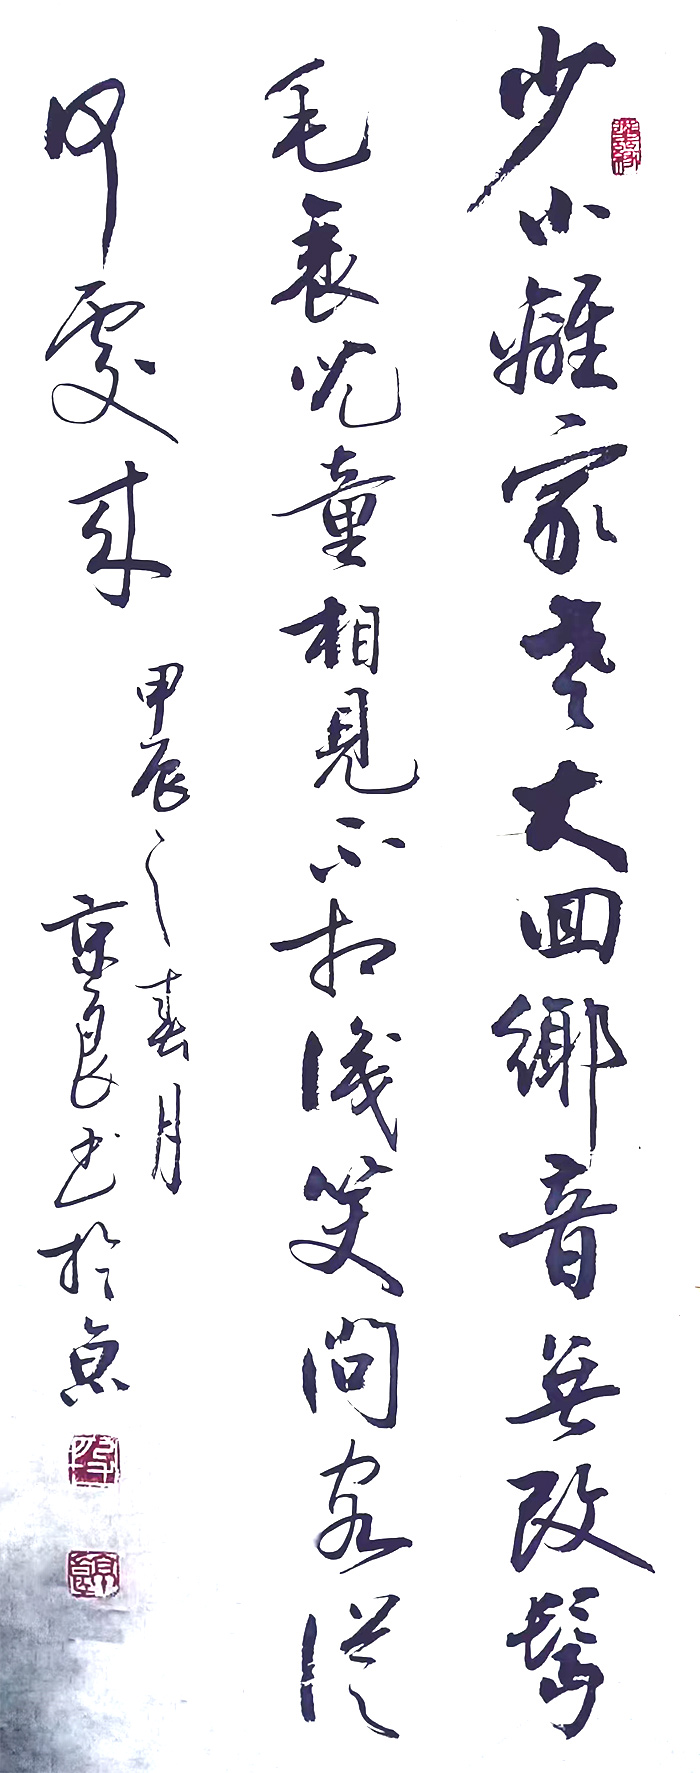 少小離家老大回鄉音無改鬢
毛衰兒童相見不相識笑問客從
何處來
甲辰之春月
京良书於京